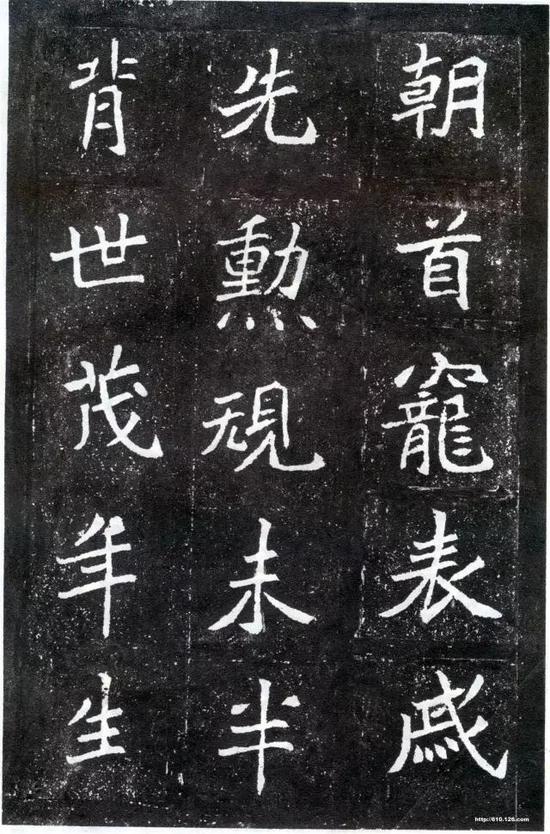 朝首竉表戚
先勳規未半
背世茂年生
http://610.126.com